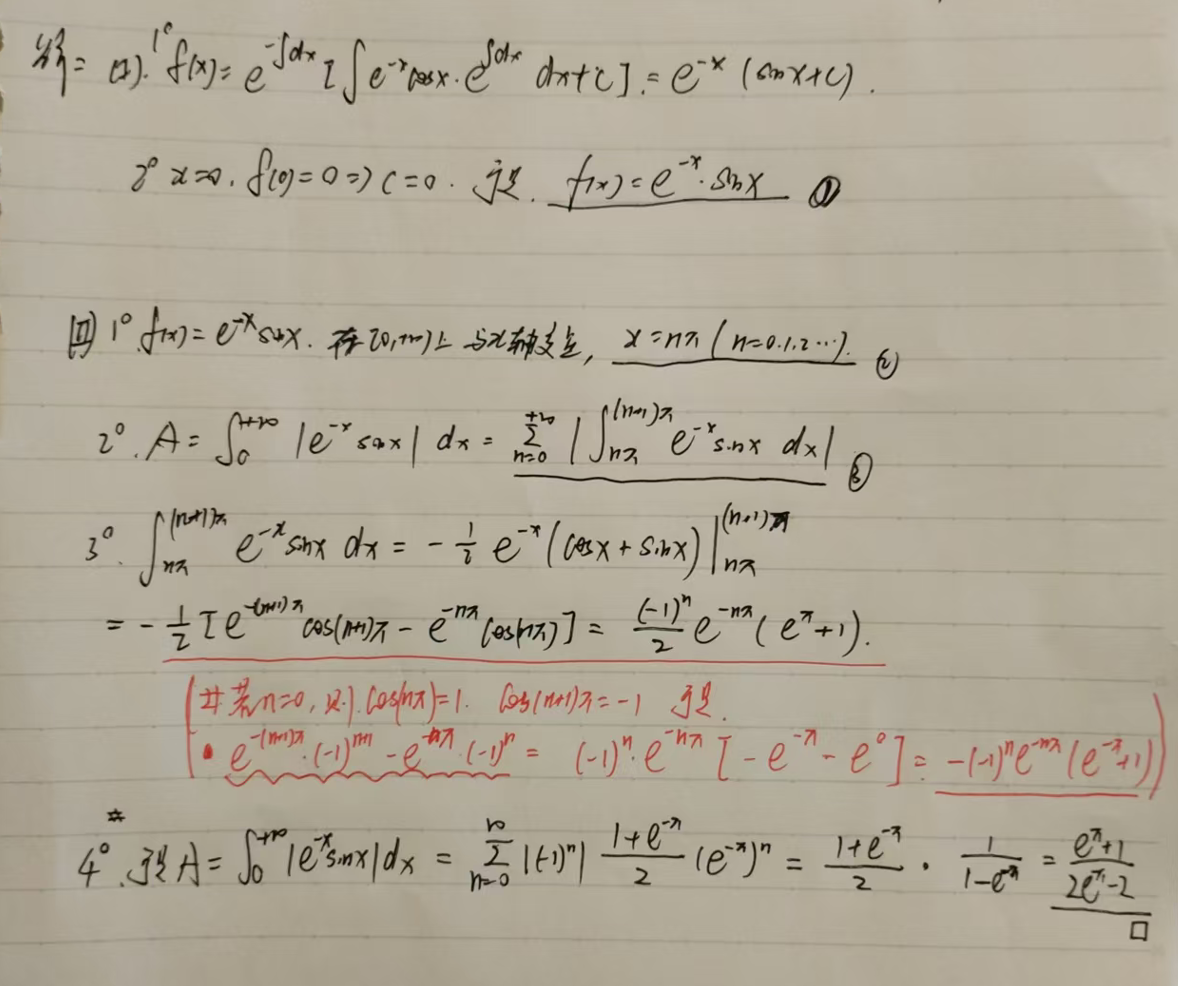 解: (I). 1° f(x) = e^{-∫dx} [∫e^{-x}cosx·e^{∫dx} dx + C]. = e^{-x} (sinx+C).
2° x=0. f(0)=0 ⇒ C=0. 于是. f(x) = e^{-x}·sinx ①
(II) 1° f(x) = e^{-x}sinx. 在[0,+∞)上与x轴交点, x=nπ (n=0.1.2…). ②
2°. A = ∫_0^{+∞} |e^{-x}sinx| dx = \sum_{n=0}^{+∞} |∫_{nπ}^{(n+1)π} e^{-x}sinx dx| ③
3°. ∫_{nπ}^{(n+1)π} e^{-x}sinx dx = -\frac{1}{2} e^{-x}(cosx+sinx)|_{nπ}^{(n+1)π}
= -\frac{1}{2}[e^{-(n+1)π}cos(n+1)π - e^{-nπ}cos(nπ)] = \frac{(-1)^n}{2} e^{-nπ}(e^π+1).
(# 若n=0, 则.) cos(nπ)=1. cos(n+1)π=-1 于是.
• e^{-(n+1)π}·(-1)^{n+1} - e^{-nπ}·(-1)^n = (-1)^n·e^{-nπ}[-e^{-π}-e^0] = -(-1)^n e^{-nπ}(e^{-π}+1))
# 4°. 于是A = ∫_0^{+∞} |e^{-x}sinx|dx = \sum_{n=0}^{∞} |(-1)^n| \frac{1+e^{-π}}{2} (e^{-π})^n = \frac{1+e^{-π}}{2} · \frac{1}{1-e^{-π}} = \frac{e^π+1}{2e^π-2}
□